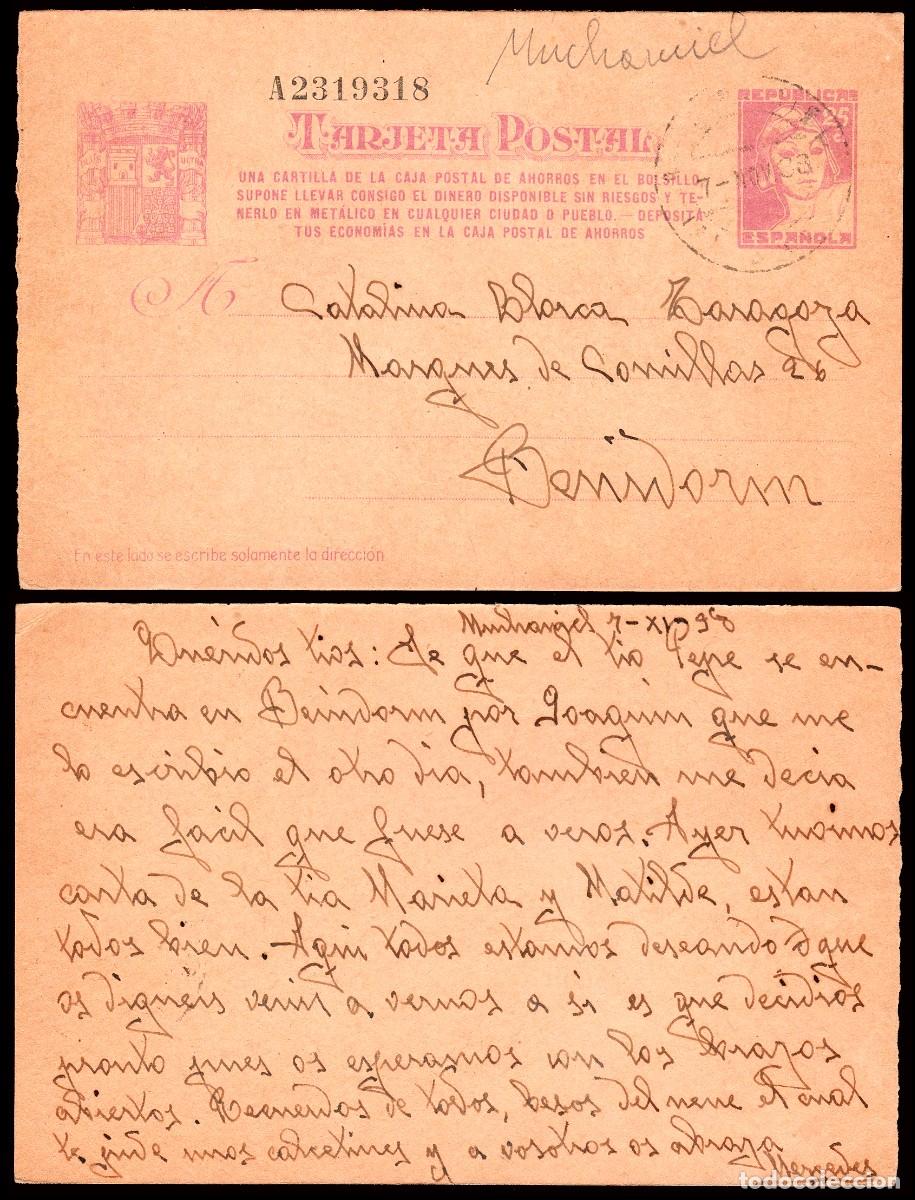 Muchamiel
A2319318
TARJETA POSTAL
REPUBLICA
25
PLUS ULTRA
UNA CARTILLA DE LA CAJA POSTAL DE AHORROS EN EL BOLSILLO
SUPONE LLEVAR CONSIGO EL DINERO DISPONIBLE SIN RIESGOS Y TE-
NERLO EN METÁLICO EN CUALQUIER CIUDAD O PUEBLO.—DEPOSITA
TUS ECONOMÍAS EN LA CAJA POSTAL DE AHORROS
ESPAÑOLA
A
Catalina Llorca Zaragoza
Marques de Comillas 26
Benidorm
En este lado se escribe solamente la dirección
Muchamiel 7-XI-938
Queridos tios: Se que el tio Pepe se en-
cuentra en Benidorm por Joaquin que me
lo escribio el otro dia, tambien me decia
era fácil que fuese a veros. Ayer tuvimos
carta de la tia Marieta y Matilde, estan
todos bien. Aqui todos estamos deseando que
os digneis venir a vernos a si es que decidios
pronto pues os esperamos con los brazos
abiertos. Recuerdos de todos, besos del nene el cual
te pide unos calcetines y a vosotros os abraza
Mercedes
todocoleccion